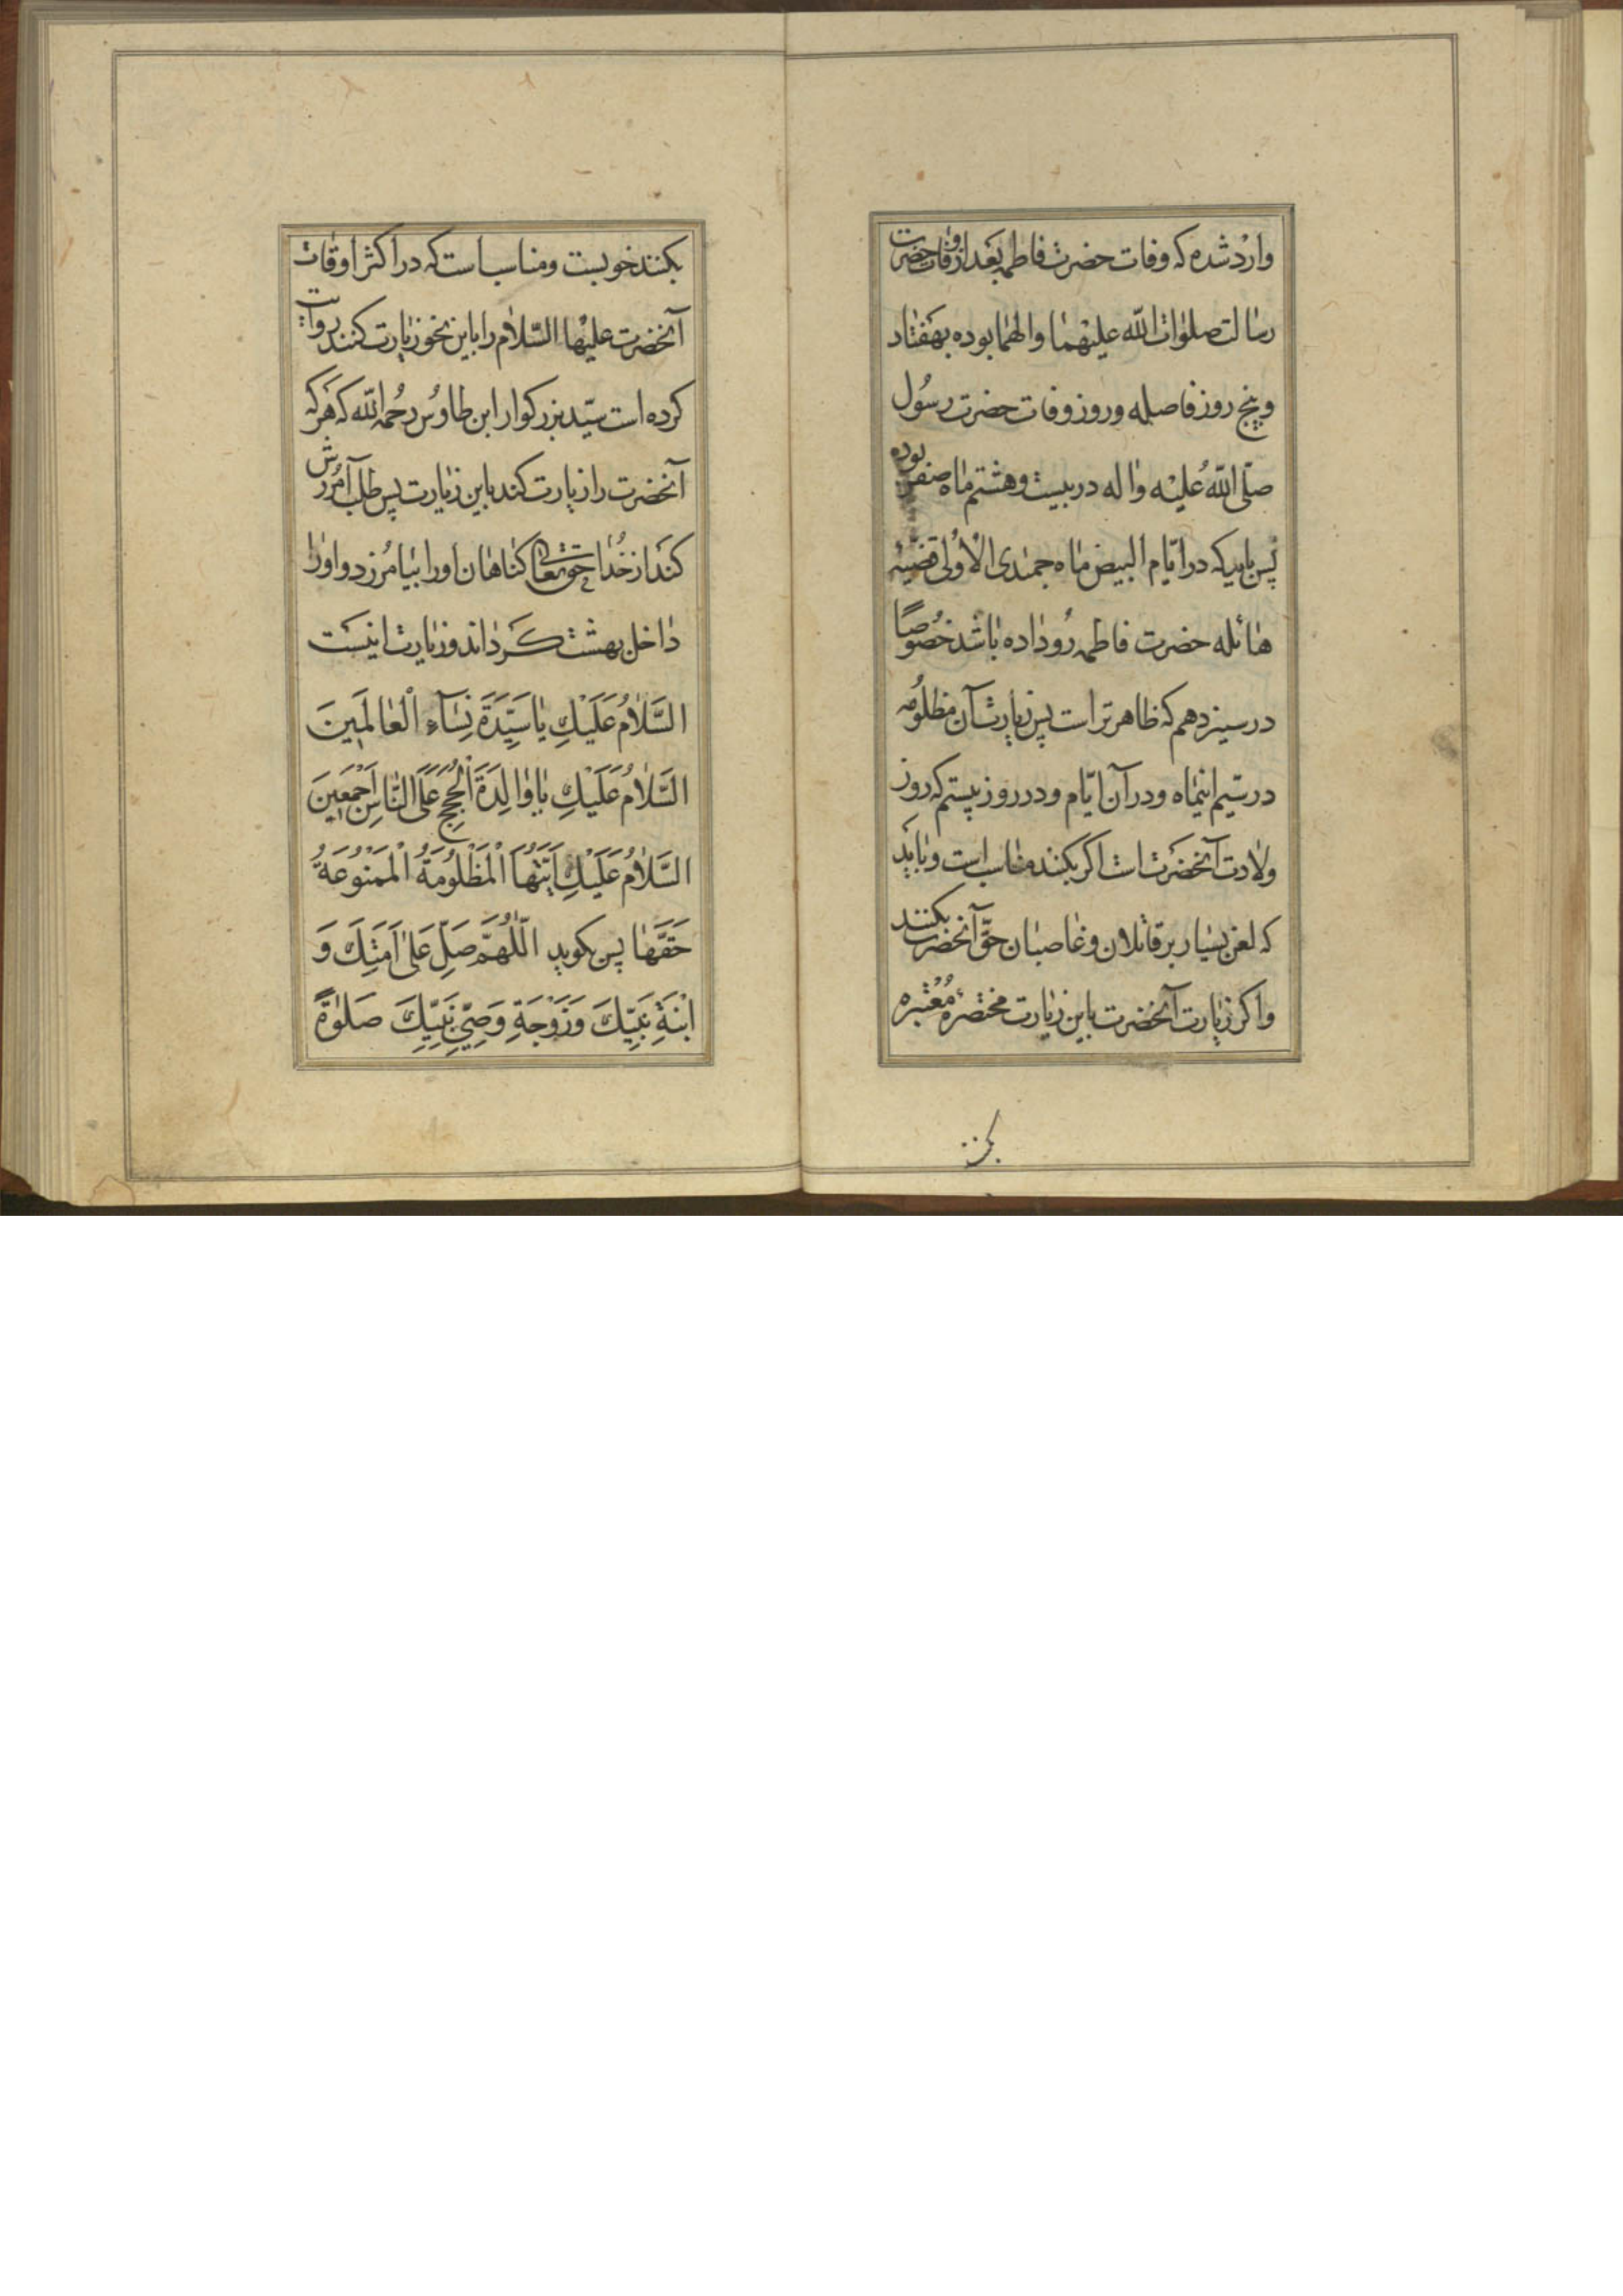 وارد شده که وفات حضرت فاطمه بعد از وفات حضرت
رسالت صلوات الله علیهما و الهما بوده بهفتاد
و پنج روز فاصله و روز وفات حضرت رسول
صلّی الله علیه و اله در بیست و هشتم ماه صفر بوده
پس باید که در ایّام البیض ماه جمدی الاولی قضیّه
هائله حضرت فاطمه رو داده باشد خصوصًا
در سیزدهم که ظاهرتر است پس زیارت آن مظلومه
در سیّم اینماه و در آن ایّام و در روز بیستم که روز
ولادت آنحضرت است اگر بکنند مناسب است و باید
که لعن بسیار بر قاتلان و غاصبان حقّ آنحضرت بکنند
و اکر زیارت آنحضرت باین زیارت مختصرهٔ معتبره
بکنند
بکنند خوبست و مناسب است که در اکثر اوقات
آنحضرت علیها السّلام را باین نحو زیارت کنند روایت
کرده است سیّد بزرکوار ابن طاوس رحمه الله که هرکه
آنحضرت را زیارت کند باین زیارت پس طلب آمرزش
کند از خدا حقتعالی کناهان او را بیامرزد و او را
داخل بهشت کرداند و زیارت اینست
السَّلامُ عَلَیْكِ یا سَیِّدَةَ نِسَآءِ الْعالَمینَ
السَّلامُ عَلَیْكِ یا والِدَةَ الْحُجَجِ عَلَی النّاسِ اَجْمَعینَ
السَّلامُ عَلَیْكِ اَیَّتُهَا الْمَظْلُومَةُ الْمَمْنُوعَةُ
حَقَّها پس بکوید اللّهُمَّ صَلِّ عَلی اَمَتِكَ وَ
ابْنَةِ نَبِیِّكَ وَ زَوْجَةِ وَصِیِّ نَبِیِّكَ صَلوةً